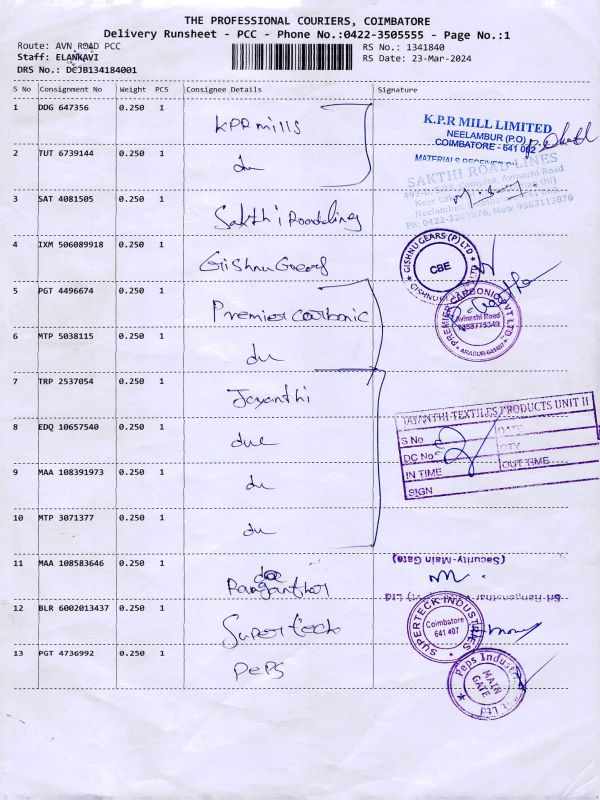 THE PROFESSIONAL COURIERS, COIMBATORE
Delivery Runsheet - PCC - Phone No.:0422-3505555 - Page No.:1
Route: AVN ROAD PCC
RS No.: 1341840
Staff: ELANKAVI
RS Date: 23-Mar-2024
DRS No.: DCJB134184001
S No Consignment No Weight PCS Consignee Details Signature
1 DDG 647356 0.250 1 KPR mills
K.P.R MILL LIMITED
NEELAMBUR (P.O)
COIMBATORE - 641 062
2 TUT 6739144 0.250 1 du
SAKTHI ROAD LINES
3 SAT 4081505 0.250 1 Sakthi Roadling
Ph: 0422-3203876, Mob: 9363113876
4 IXM 506089918 0.250 1 Gishnu Gears
GISHNU GEARS (P) LTD
CBE
5 PGT 4496674 0.250 1 Premier carbonic
PREMIER CARBONIC PVT LTD
Avinashi Road
ARASUR-641407
6 MTP 5038115 0.250 1 du
7 TRP 2537054 0.250 1 Jayanthi
JAYANTHI TEXTILES PRODUCTS UNIT II
8 EDQ 10657540 0.250 1 due
S No DATE
DC No QTY
9 MAA 108391973 0.250 1 du
IN TIME OUT TIME
SIGN
10 MTP 3071377 0.250 1 du
11 MAA 108583646 0.250 1
(Security-Main Gate)
12 BLR 6002013437 0.250 1 Supertech
SUPERTECK INDUSTRIES
Coimbatore
641 407
13 PGT 4736992 0.250 1 Peps
Peps Industries
MAIN
GATE